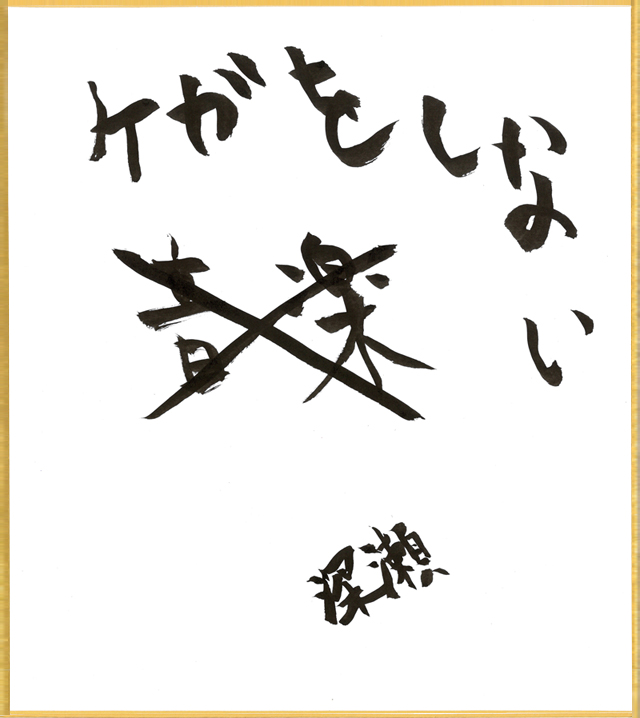 ケがをしない
音楽
深瀬